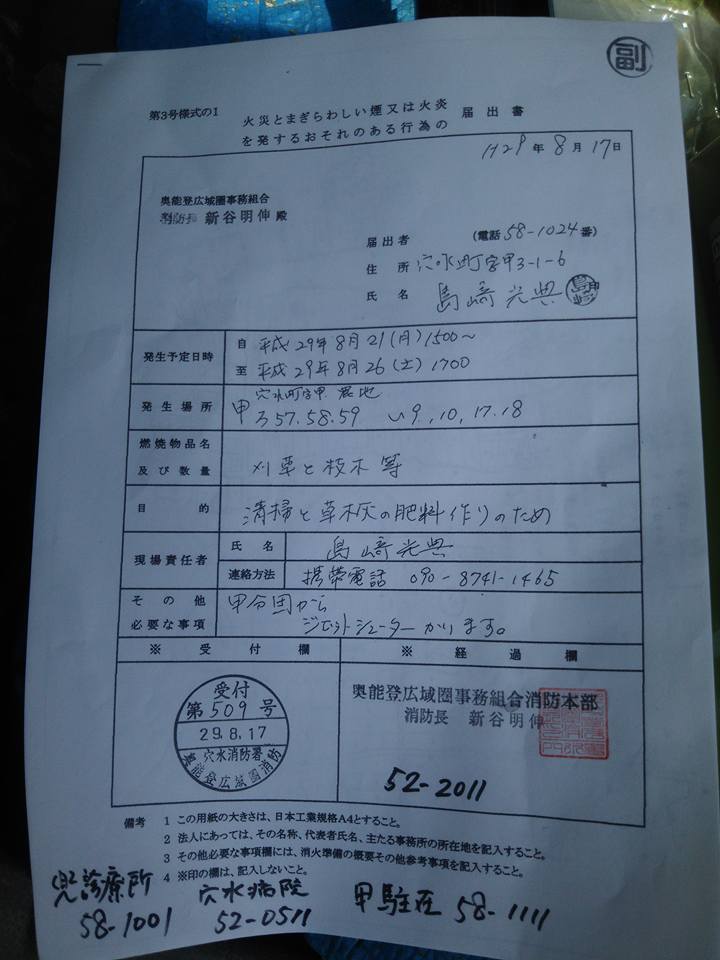 副
第3号様式の1
火災とまぎらわしい煙又は火炎
を発するおそれのある行為の
届出書
H29年8月17日
奥能登広域圏事務組合
消防長 新谷明伸 殿
届出者 (電話 58-1024番)
住所 穴水町字甲3-1-6
氏名 島崎光典
発生予定日時
自 平成29年8月21(月)1500~
至 平成29年8月26(土)1700
発生場所
穴水町字甲 農地
甲ろ57.58.59 い9.,10,17.18
燃焼物品名
及び数量
刈草と枝木等
目的
清掃と草木灰の肥料作りのため
現場責任者
氏名 島崎光典
連絡方法 携帯電話 090-8741-1465
その他
必要な事項
甲分団から
ジェットシューターかります。
※ 受付欄
※ 経過欄
受付
第509号
29.8.17
穴水消防署
奥能登広域圏消防
奥能登広域圏事務組合消防本部
消防長 新谷明伸
52-2011
備考 1 この用紙の大きさは、日本工業規格A4とすること。
2 法人にあっては、その名称、代表者氏名、主たる事務所の所在地を記入すること。
3 その他必要な事項欄には、消火準備の概要その他参考事項を記入すること。
4 ※印の欄は、記入しないこと。
診療所 穴水病院 甲駐在 58-1111
58-1001 52-0511